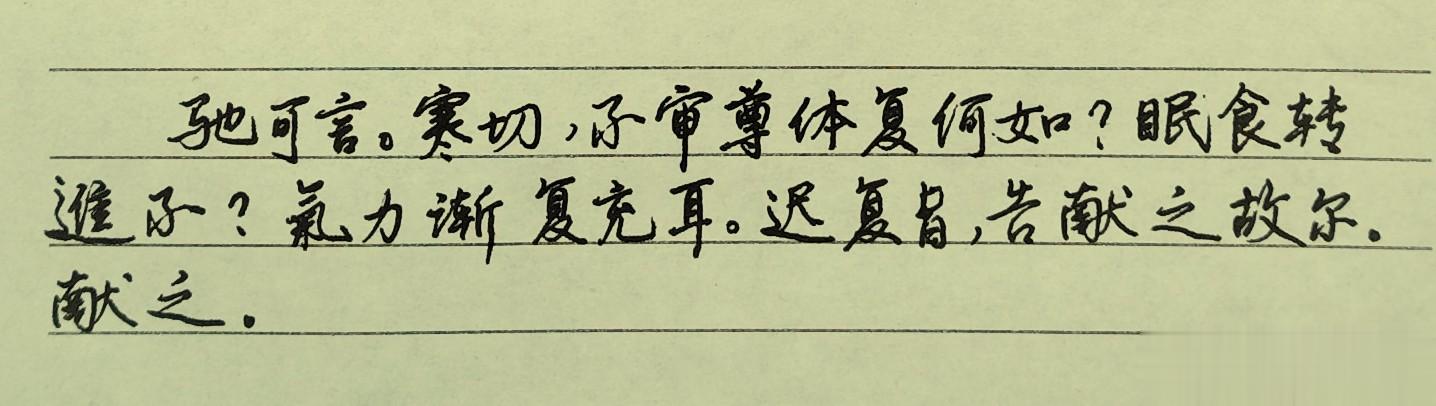 驰可言。寒切,不审尊体复何如?眠食转
進不?氣力渐复充耳。迟复旨,告献之故尔.
献之.